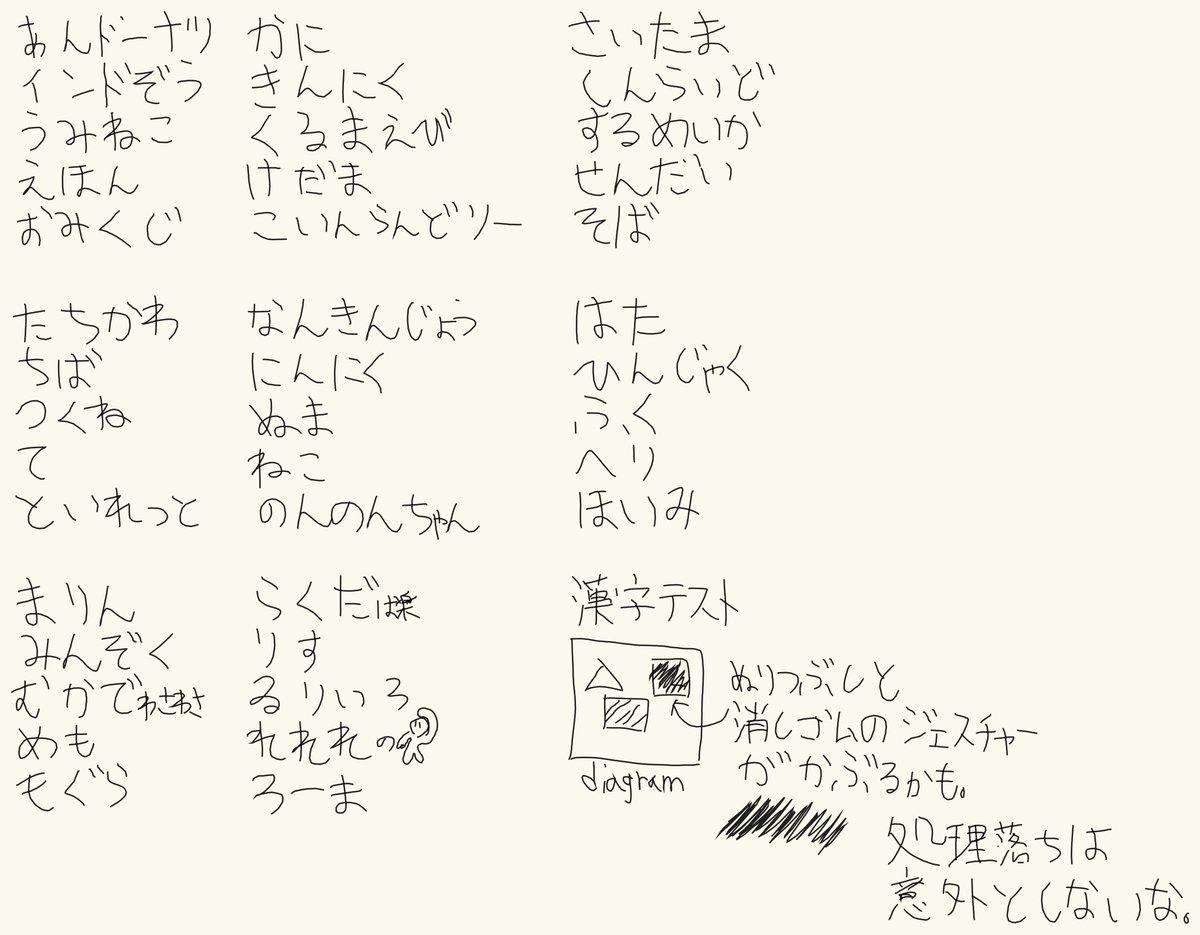 あんドーナツ
インドぞう
うみねこ
えほん
おみくじ
かに
きんにく
くるまえび
けだま
こいんらんどリー
さいたま
しんらいど
するめいか
せんだい
そば
たちかわ
ちば
つくね
て
といれっと
なんきんじょう
にんにく
ぬま
ねこ
のんのんちゃん
はた
ひんじゃく
ふく
へり
ほいみ
まりん
みんぞく
むかでわさわさ
めも
もぐら
らくだは楽
りす
るりいろ
れれれの
ろーま
漢字テスト
diagram
ぬりつぶしと
消しゴムのジェスチャー
がかぶるかも。
処理落ちは
意外としないな。